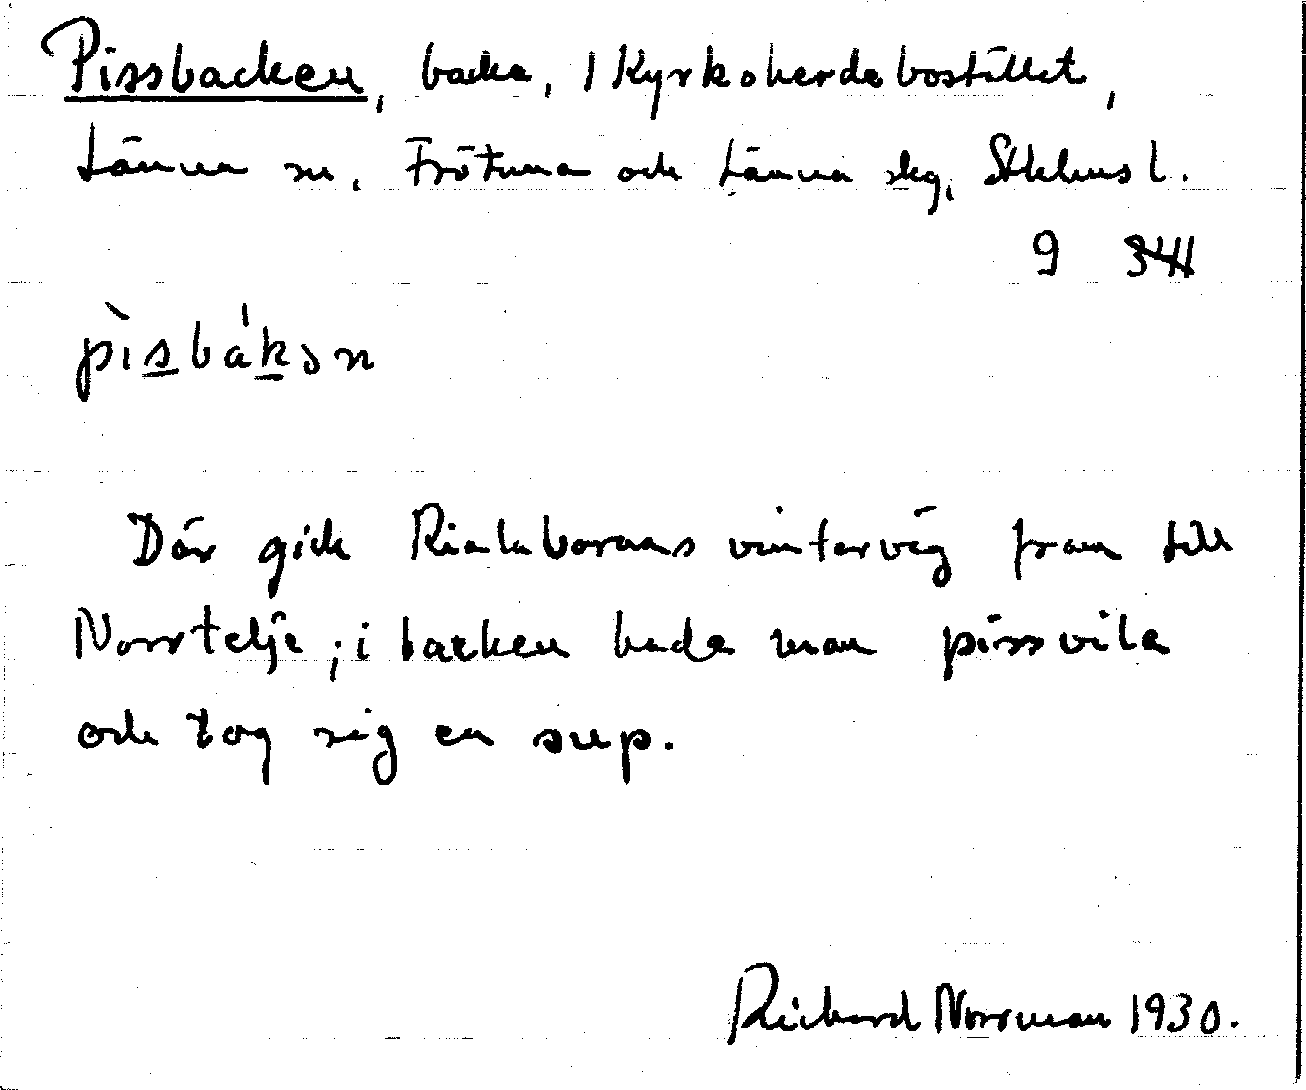 Pissbacken, backe, 1 Kyrkoherdebostället,
Länna sn, Frötuna och Länna skg, Sthlms l.
9
pìsbák̲ən
Där gick Rialabornas vinterväg fram till
Norrtelje; i backen hade man pissvila
och tog sig en sup.
Richard Norrman 1930.